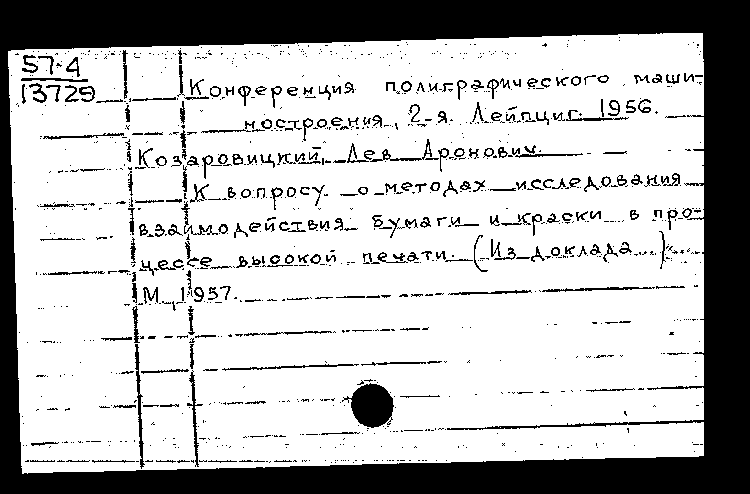 57-4
13729
Конференция полиграфического маши-
ностроения, 2-я. Лейпциг. 1956.
Козаровицкий, Лев Аронович.
К вопросу о методах исследования
взаимодействия бумаги и краски в про-
цессе высокой печати. (Из доклада...)
М., 1957.